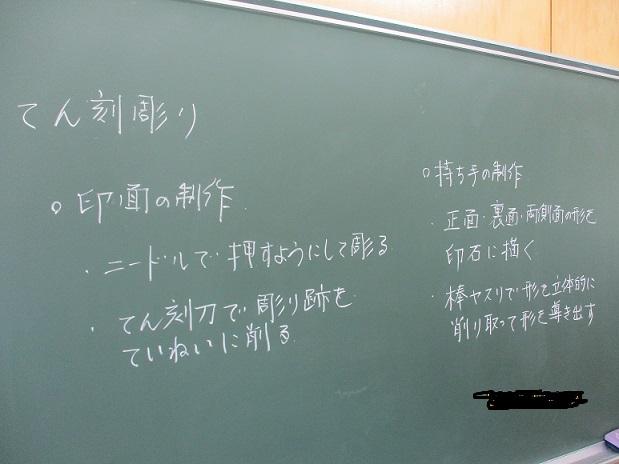 てん刻彫り
○ 印面の制作
・ニードルで押すようにして彫る
・てん刻刀で彫り跡を
ていねいに削る
○ 持ち手の制作
・正面・裏面・両側面の形を
印石に描く
・棒ヤスリで形を立体的に
削り取って形を導き出す